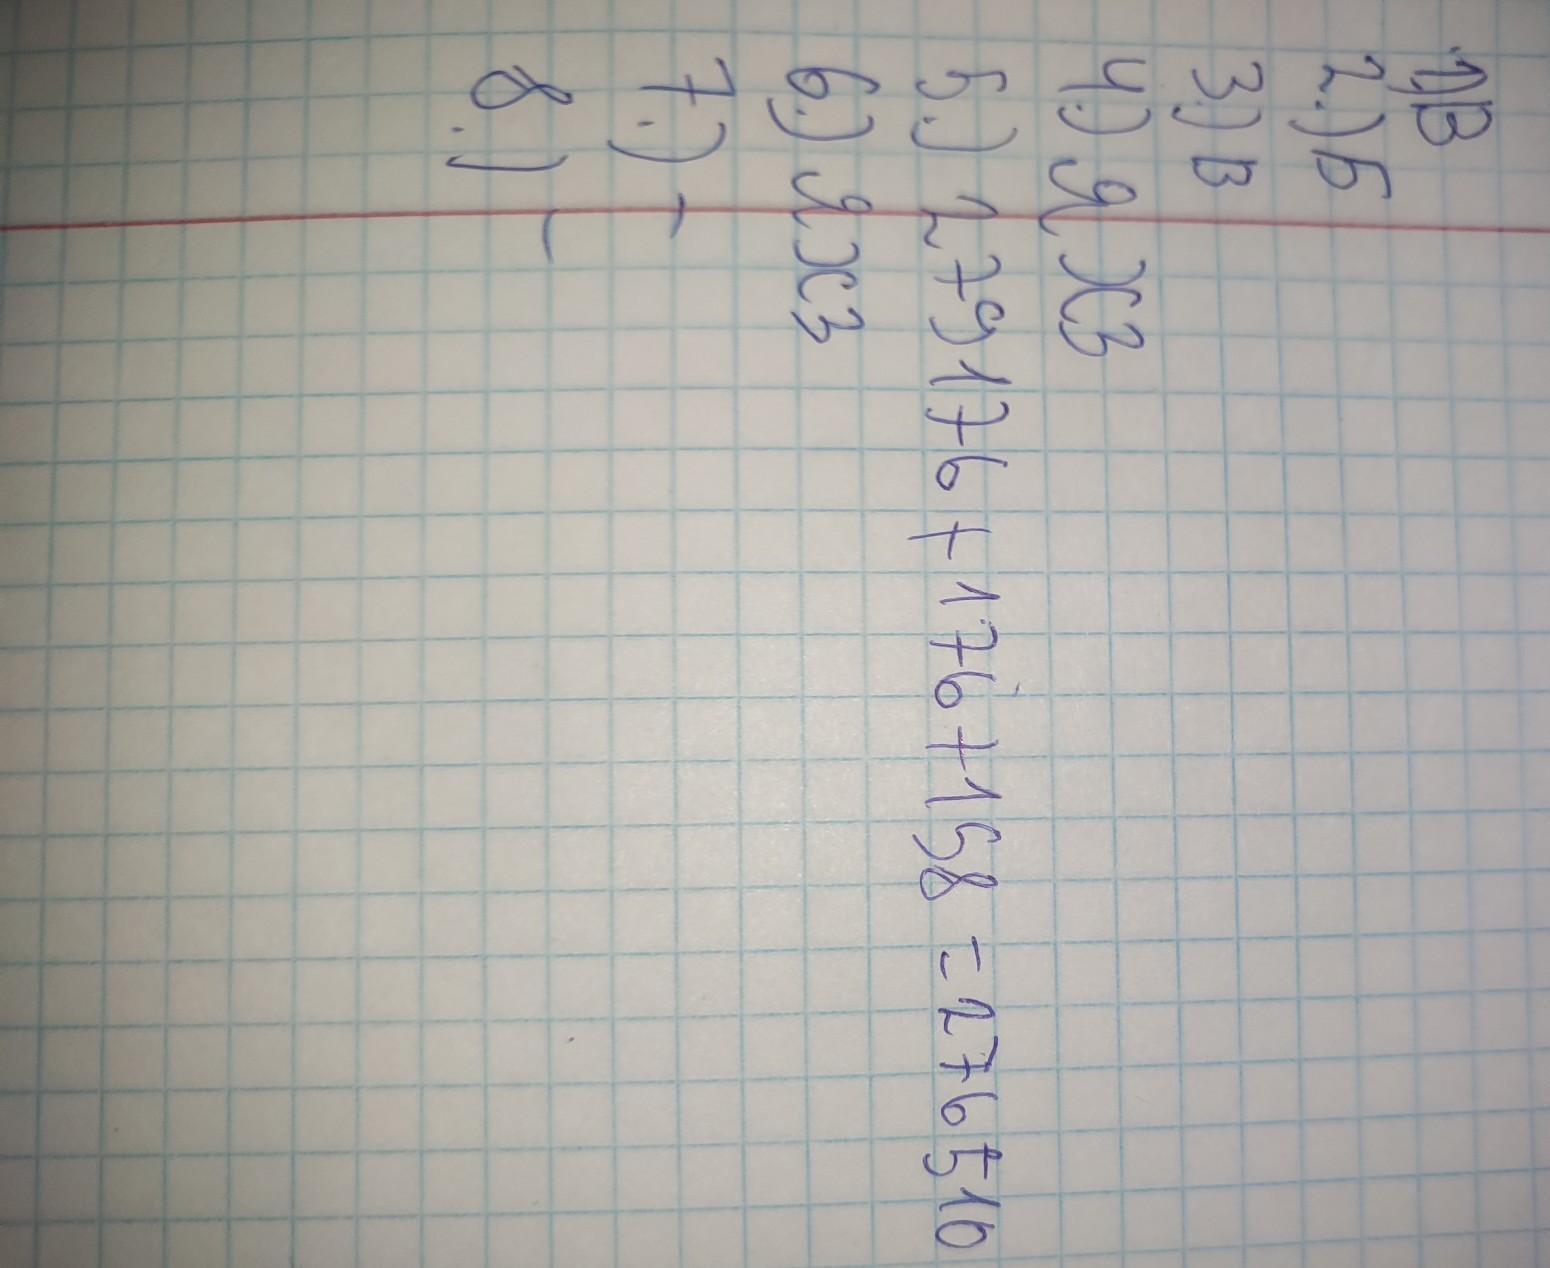 1) В
2.) Б
3.) В
4.) Я ХЗ
5.) 279176 + 176 + 158 = 276510
6.) Я ХЗ
7.) -
8.) -